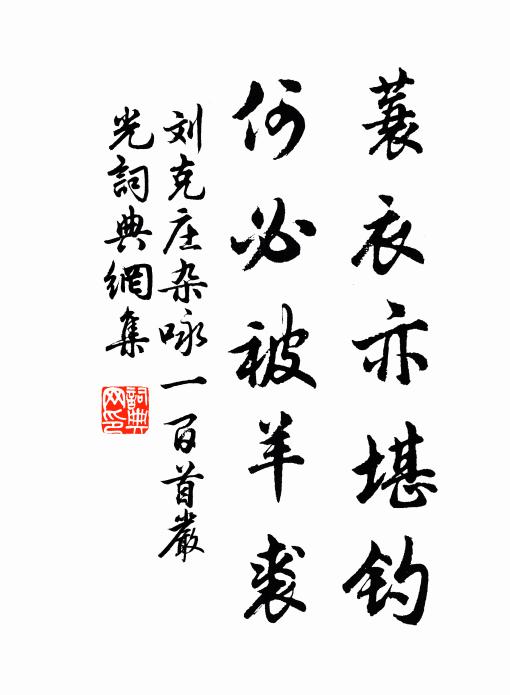 蓑衣亦堪钓
何必被羊裘
刘克庄杂咏一百首嚴
光詞典網集
詞典
网印